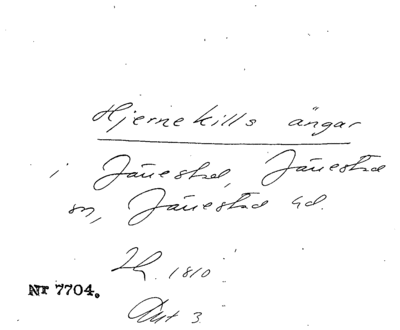 Hjernekills ängar
i Järrestad, Järrestad
sn, Järrestad hd.
1810
Nr 7704.
Akt 3